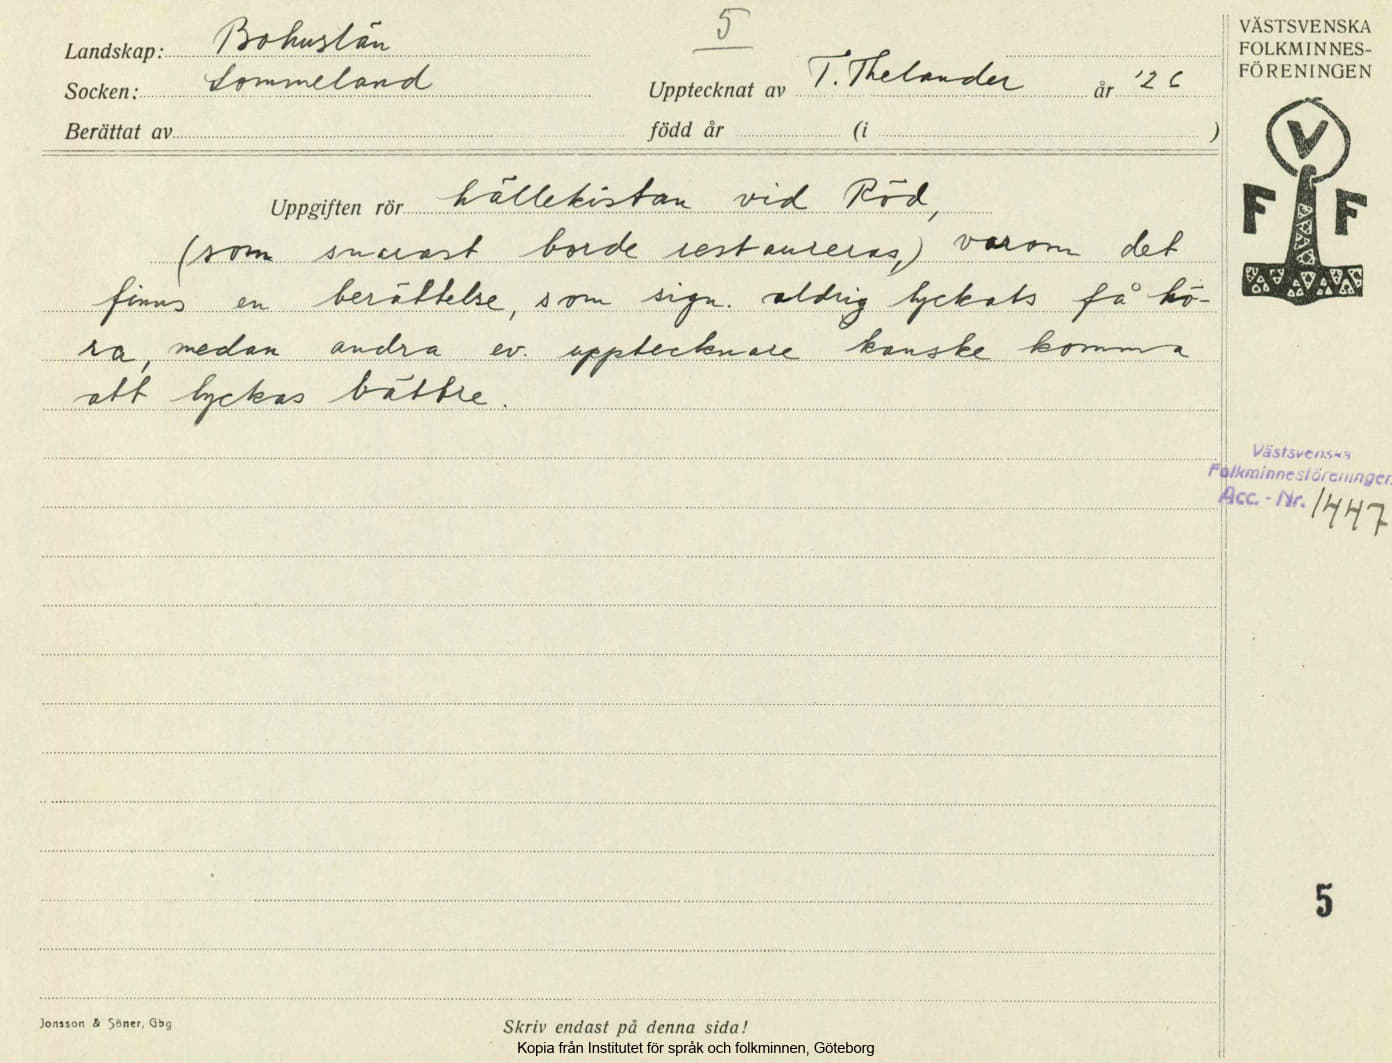 5
Landskap: Bohuslän
Socken: Lommeland
Upptecknat av T. Thelander år '26
Berättat av
född år (i )
VÄSTSVENSKA
FOLKMINNES-
FÖRENINGEN
V
F F
Uppgiften rör hällekistan vid Röd,
(som snarast borde restaureras,) varom det
finns en berättelse, som sign. aldrig lyckats få hö-
ra, medan andra ev. upptecknare kanske komma
att lyckas bättre.
Västsvenska
Folkminnesföreningen
Acc.-Nr. 1447
5
Jonsson & Söner, Gbg
Skriv endast på denna sida!
Kopia från Institutet för språk och folkminnen, Göteborg